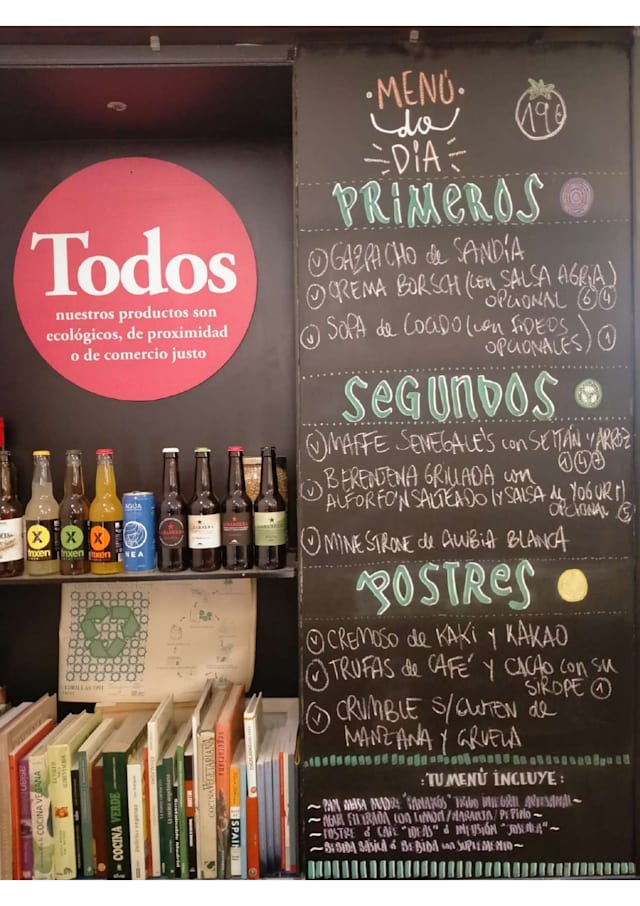 Todos
nuestros productos son
ecológicos, de proximidad
o de comercio justo
MENÚ
do
DÍA
19€
PRIMEROS
V GAZPACHO de SANDÍA
V CREMA BORSCH (con SALSA AGRIA)
OPCIONAL 6 4
V SOPA de COCIDO (con FIDEOS
OPCIONALES) 1
SEGUNDOS
V MAFFE SENEGALÉS con SEITÁN Y ARROZ
1 4 7
V BERENJENA GRILLADA con
ALFORFÓN SALTEADO (Y SALSA de YOGURT)
OPCIONAL
V MINESTRONE de ALUBIA BLANCA
POSTRES
V CREMOSO de KAKI Y KAKAO
V TRUFAS de CAFÉ Y CACAO con su
SIROPE 1
V CRUMBLE S/GLUTEN de
MANZANA Y CIRUELA
:TU MENÚ INCLUYE:
~PAN MASA MADRE TRIGO INTEGRAL ARTESANAL~
~AGUA FILTRADA con LIMÓN/NARANJA/PEPINO~
~POSTRE ó CAFÉ "IDEAS" ó INFUSIÓN "JOSENEA"~
~BEBIDA BÁSICA ó BEBIDA con SUPLEMENTO~
X
fnxen
X
fnxen
X
fnxen
AGUA
NEA
COCINA VEGANA
COCINA VERDE
COCINA VEGETARIANA
SPAIN